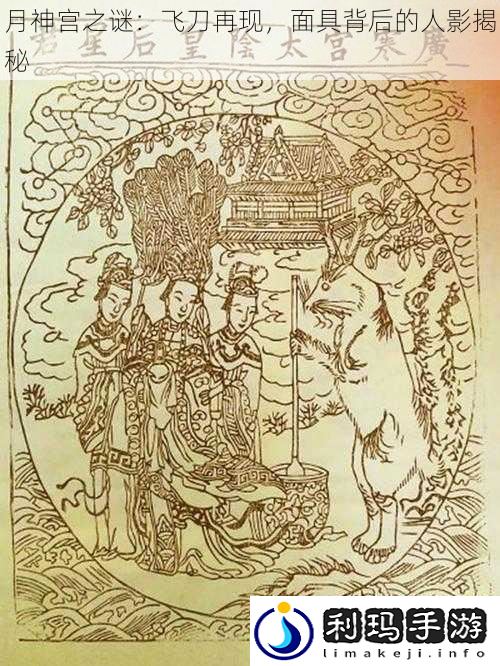 月神宫之谜：飞刀再现，面具背后的人影揭
秘
廣寒宮太陰皇后星君
利玛手游
limakeji.info